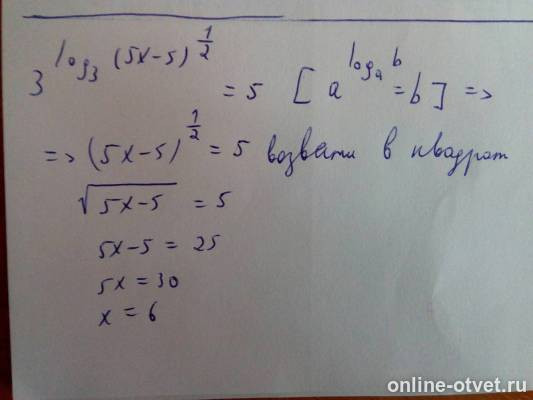 3^{log_3 (5x-5)^{1/2}} = 5 [a^{log_a b} = b] =>
=> (5x-5)^{1/2} = 5 возвести в квадрат
√(5x-5) = 5
5x-5 = 25
5x = 30
x = 6
online-otvet.ru